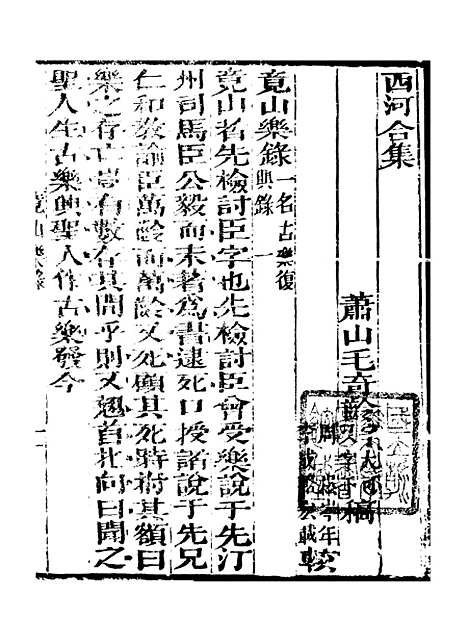 西河合集
蕭山毛奇齡 稿
竟山樂錄一 一名古樂復興錄
竟山者先檢討臣字也先檢討臣曾受樂說于先汀
州司馬臣公毅而未著為書逮死口授話說于先兄
仁和教諭臣萬齡而萬齡又死顧其死時術其額曰
樂之存亡豈有數存其閒乎則又翹首北向曰聞之
聖人生古樂興聖人作古樂發今
竟山樂錄